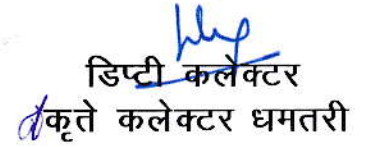 डिप्टी कलेक्टर
कृते कलेक्टर धमतरी